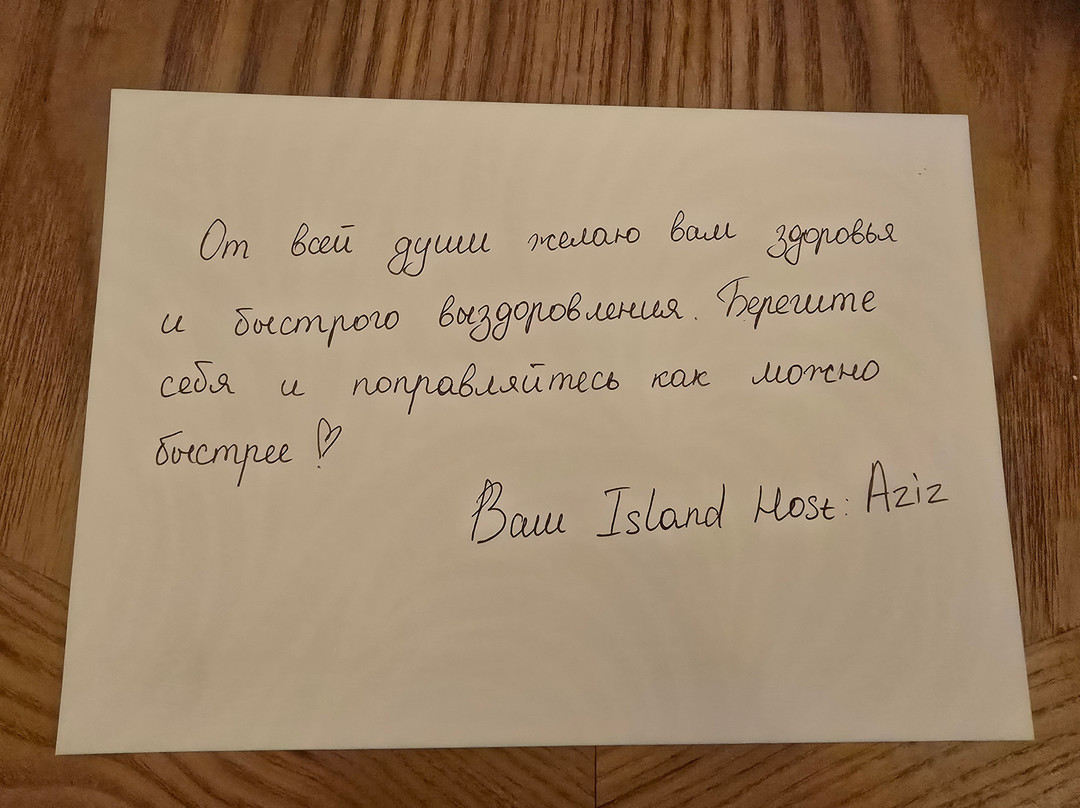 От всей души желаю вам здоровья
и быстрого выздоровления. Берегите
себя и поправляйтесь как можно
быстрее!
Ваш Island Host: Aziz